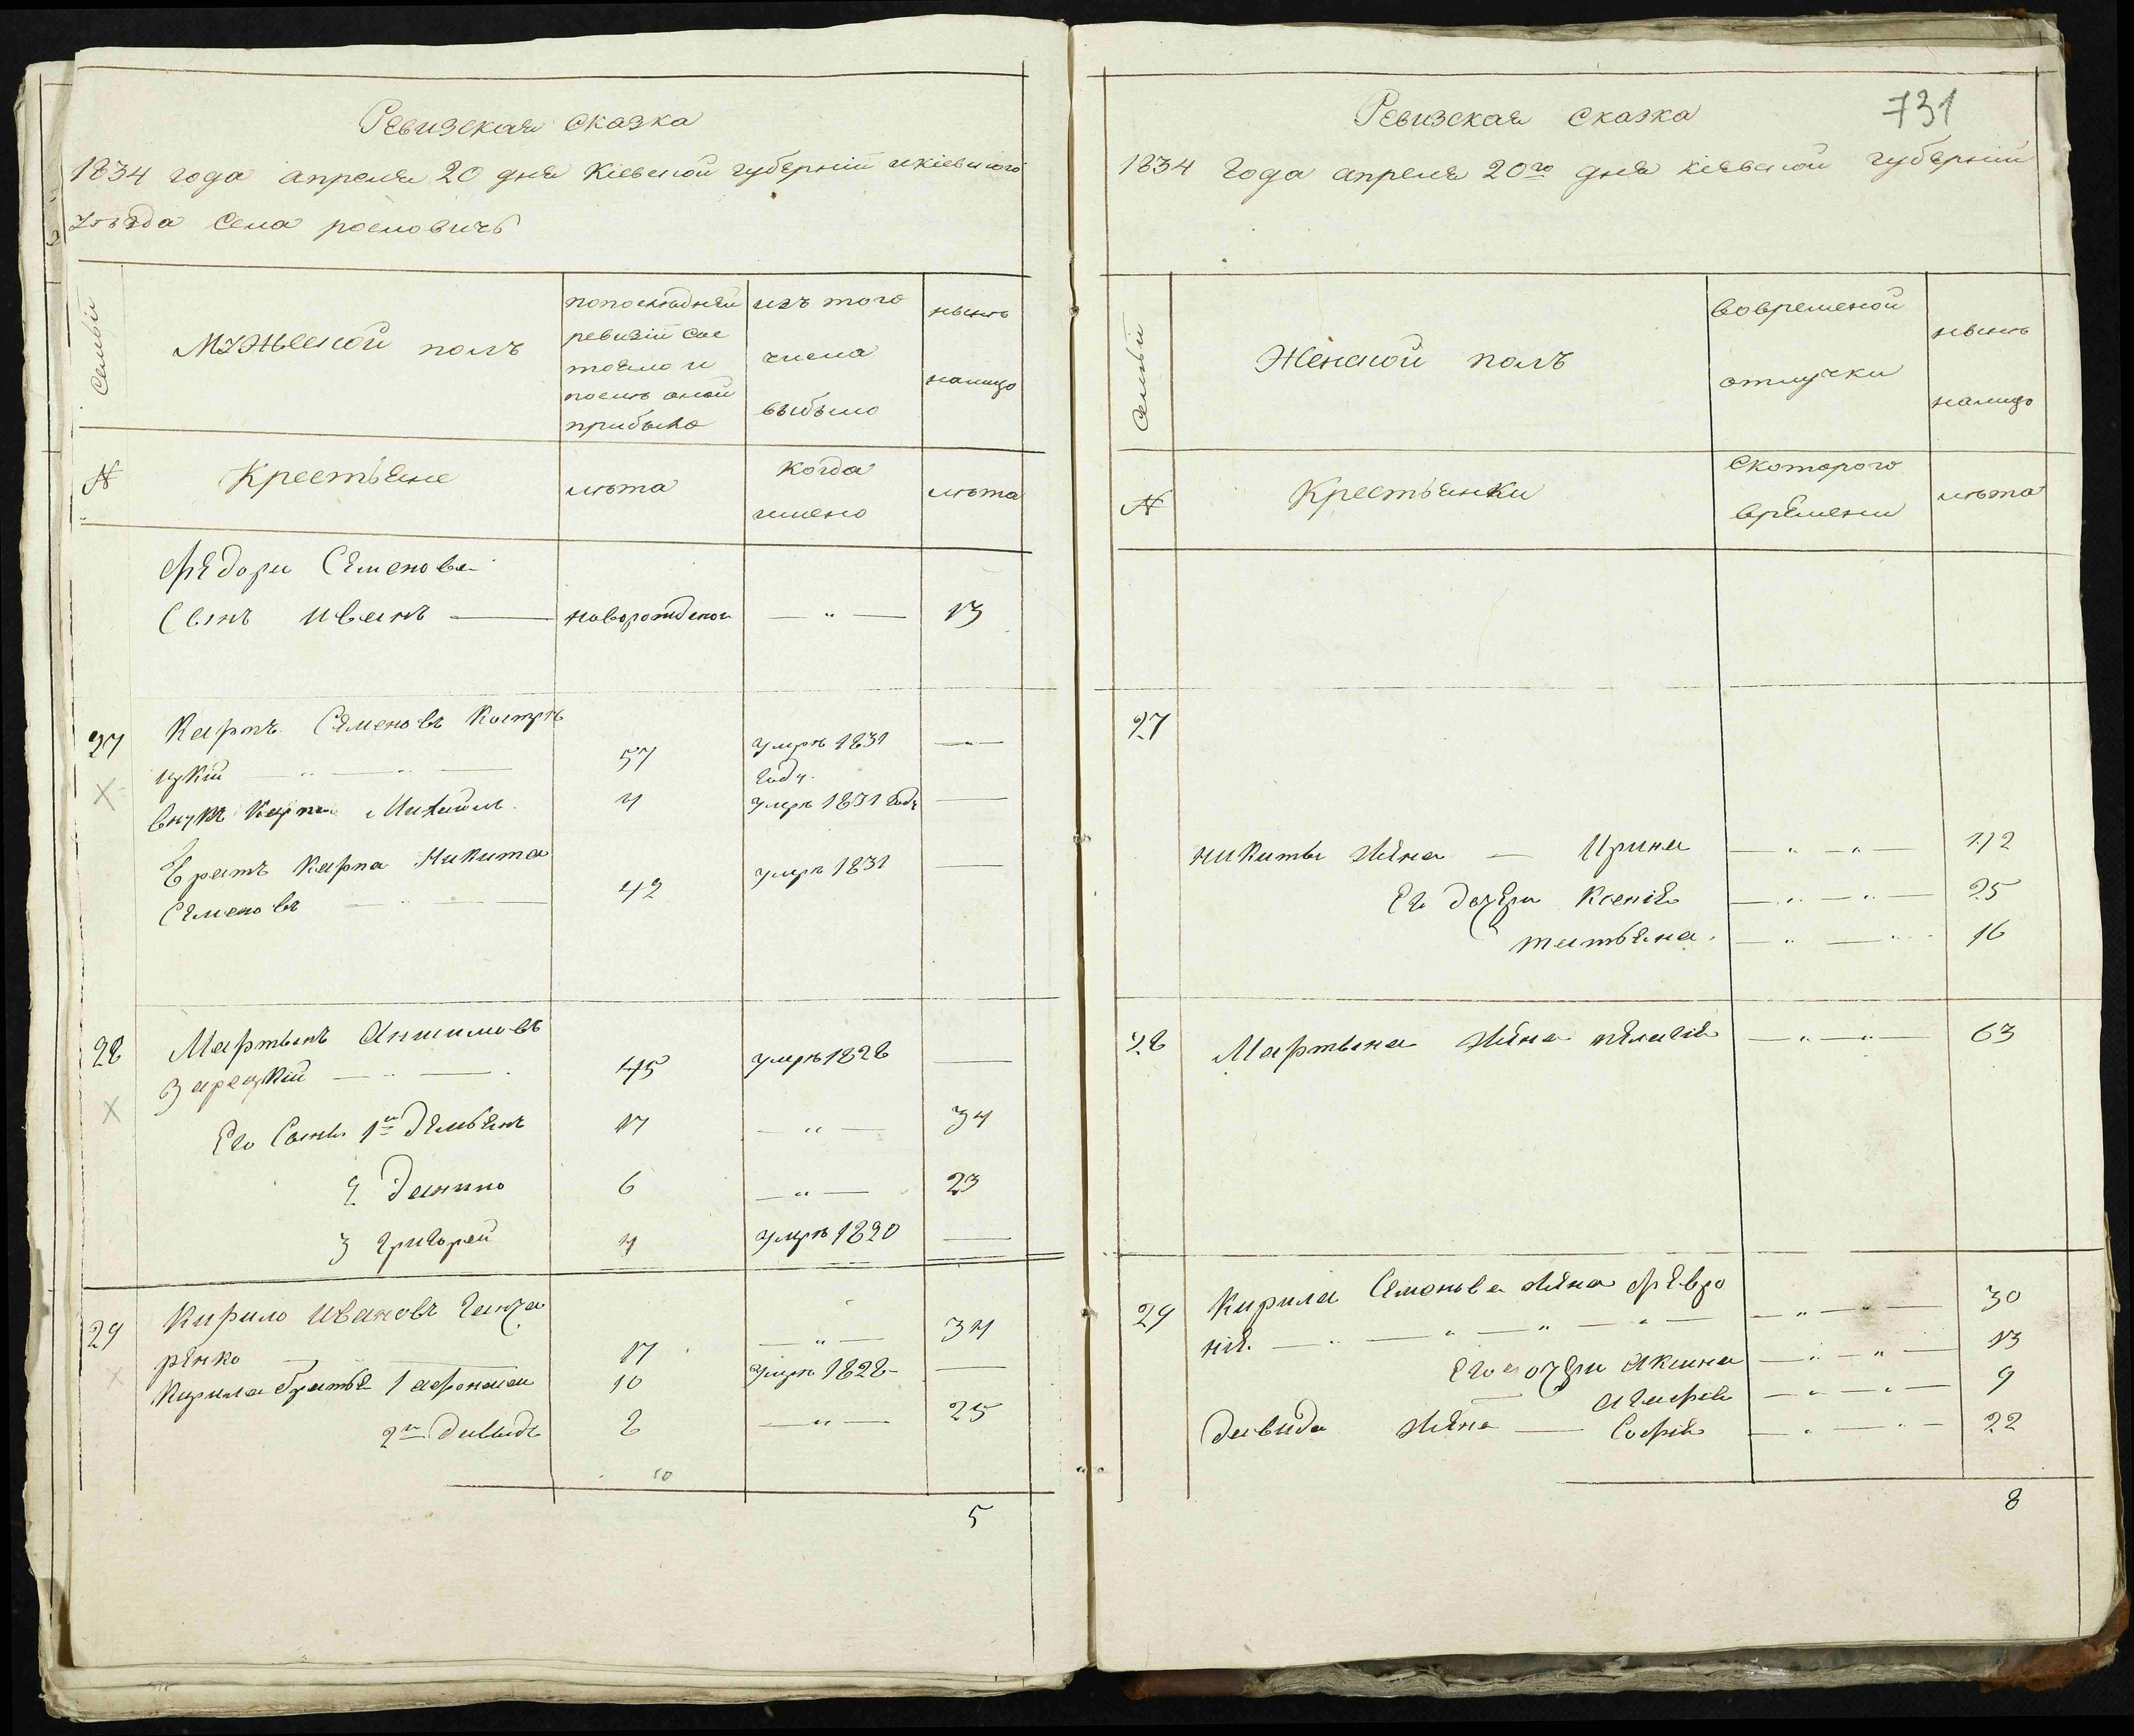 Ревизская сказка
1834 года апреля 20 дня Кіевской губерніи и кіевского
уезда Села рославичъ
Семьи
Мужеской полъ
попоследней
ревизіи сос
тояло и
после оной
прибыло
изъ того
числа
выбыло
ныне
налицо
№
Крестьяне
лета
когда
имено
лета
Федора Семенова
Сынъ Иванъ
новорожденой
13
27
Карпъ Семеновъ
цкій
57
умре 1831
году
внукъ Карпа Михаилъ
4
умре 1831 году
братъ Карпа Никита
Семеновъ
42
умре 1831
28
Мартынъ Анишимовъ
Зарецкій
45
умре 1828
Его Сыны 1й Демьянъ
17
34
2 Данило
6
23
3 григорей
4
умре 1820
29
Кирило Ивановъ Ганжа
ренко
17
34
Кирила братья 1 афонасій
10
умре 1828
2й Давидъ
8
25
10
5
Ревизская сказка
731
1834 года апреля 20го дня кіевской губерніи
Семьи
Женской полъ
вовременой
отлучки
ныне
налицо
№
Крестьянки
Скоторого
времени
лета
27
никиты жена Ирина
42
Его дочери Ксенія
25
татьяна
16
28
Мартына жена пелагія
63
29
Кирила Семонова жена Февро
нія
30
Его дочери Акилина
13
Агафія
9
Давида жена Софія
22
8